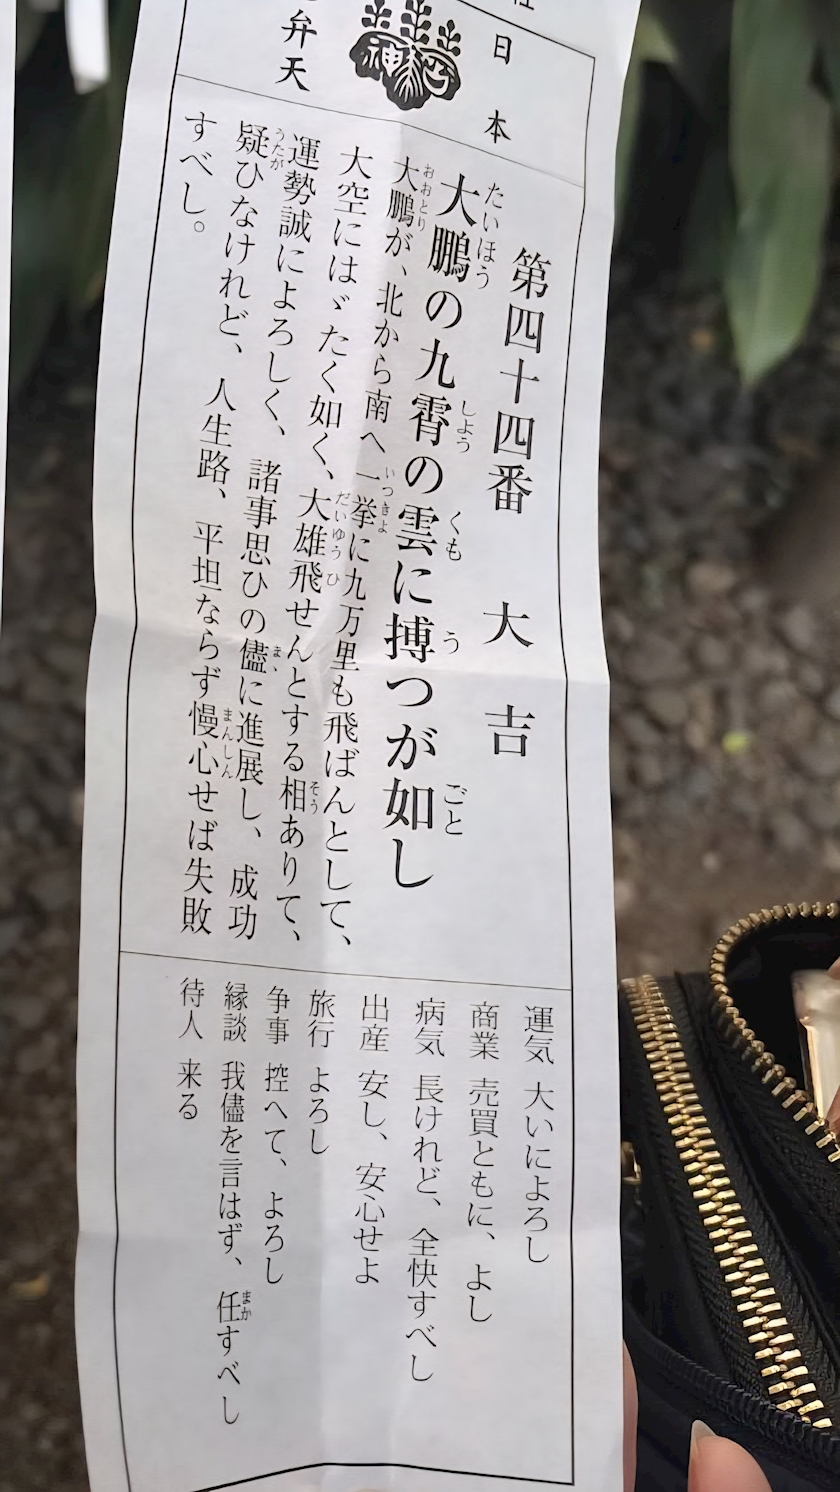 日本
弁天
第四十四番　大吉
大鵬の九霄の雲に搏つが如し
たいほう　しよう　くも　う　ごと
大鵬が、北から南へ一挙に九万里も飛ばんとして、
おおとり　いつきよ
大空にはゞたく如く、大雄飛せんとする相ありて、
だいゆうひ　そう
運勢誠によろしく、諸事思ひの儘に進展し、成功
まゝ
疑ひなけれど、人生路、平坦ならず慢心せば失敗
うたが　まんしん
すべし。
運気　大いによろし
商業　売買ともに、よし
病気　長けれど、全快すべし
出産　安し、安心せよ
旅行　よろし
争事　控へて、よろし
縁談　我儘を言はず、任すべし
まか
待人　来る